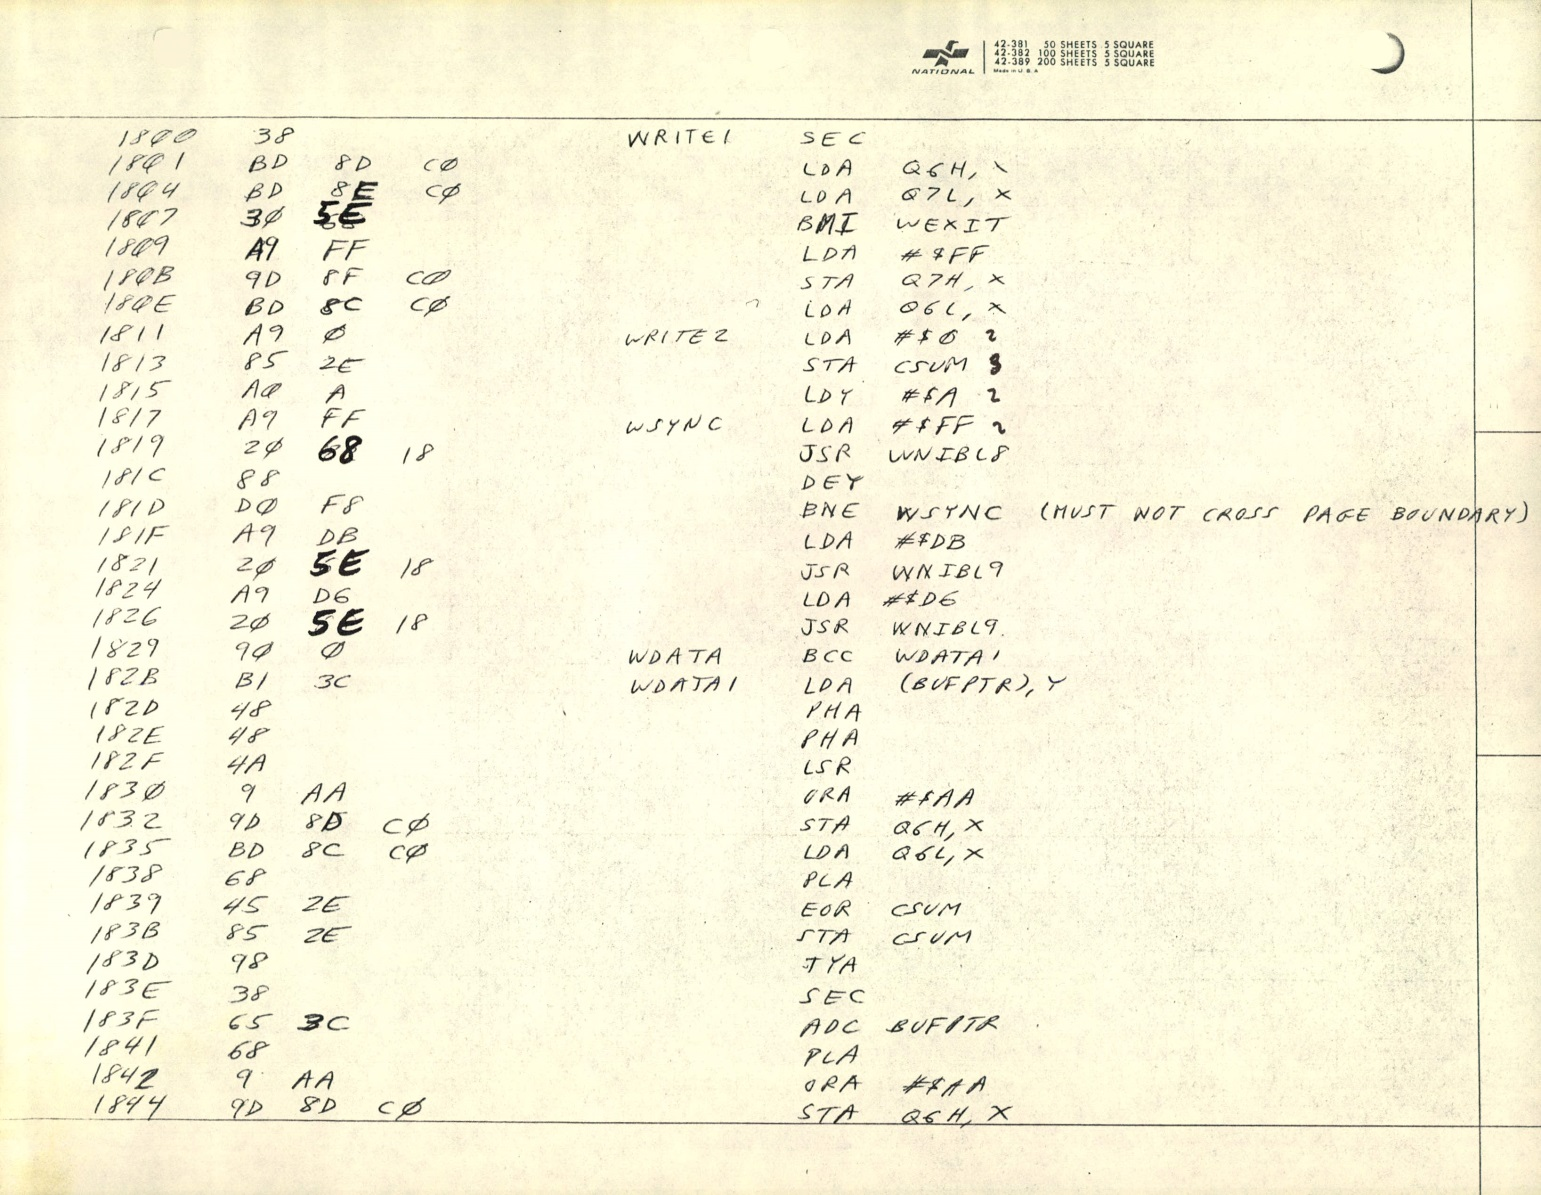 NATIONAL
42-381 50 SHEETS 5 SQUARE
42-382 100 SHEETS 5 SQUARE
42-389 200 SHEETS 5 SQUARE
Made in U.S.A
18ØØ 38 WRITE1 SEC
18Ø1 BD 8D CØ LDA Q6H, X
18Ø4 BD 8E CØ LDA Q7L, X
18Ø7 3Ø 5E BMI WEXIT
18Ø9 A9 FF LDA #$FF
18ØB 9D 8F CØ STA Q7H, X
18ØE BD 8C CØ LDA Q6L, X
1811 A9 Ø WRITE2 LDA #$0 2
1813 85 2E STA CSUM 3
1815 AØ A LDY #$A 2
1817 A9 FF WSYNC LDA #$FF 2
1819 2Ø 68 18 JSR WNIBL8
181C 88 DEY
181D DØ F8 BNE WSYNC (MUST NOT CROSS PAGE BOUNDARY)
181F A9 DB LDA #$DB
1821 2Ø 5E 18 JSR WNIBL9
1824 A9 D6 LDA #$D6
1826 2Ø 5E 18 JSR WNIBL9.
1829 9Ø Ø WDATA BCC WDATA1
182B B1 3C WDATA1 LDA (BUFPTR),Y
182D 48 PHA
182E 48 PHA
182F 4A LSR
183Ø 9 AA ORA #$AA
1832 9D 8D CØ STA Q6H, X
1835 BD 8C CØ LDA Q6L, X
1838 68 PLA
1839 45 2E EOR CSUM
183B 85 2E STA CSUM
183D 98 TYA
183E 38 SEC
183F 65 3C ADC BUFPTR
1841 68 PLA
1842 9 AA ORA #$AA
1844 9D 8D CØ STA Q6H, X